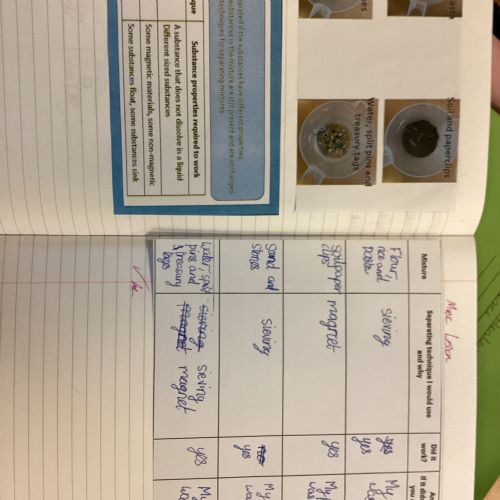 Soil and paperclips
Water, split pins and
treasury tags
parated if the substances have different properties.
substances in the mixture are still present and are unchanged
techniques for separating mixtures
que
Substance properties required to work
A substance that does not dissolve in a liquid
Different sized substances
Some magnetic materials, some non-magnetic
Some substances float, some substances sink
Mixture
Separating technique I would use
and why
Did it
work?
If it did
you
Flour,
rice and
pasta
sieving
yes
My
Soil, paper
clips
magnet
yes
My
was
Sand and
stones
sieving
yes
My
wa
Water, split
pins and
treasury
tags
sieving
magnet
yes
My
was